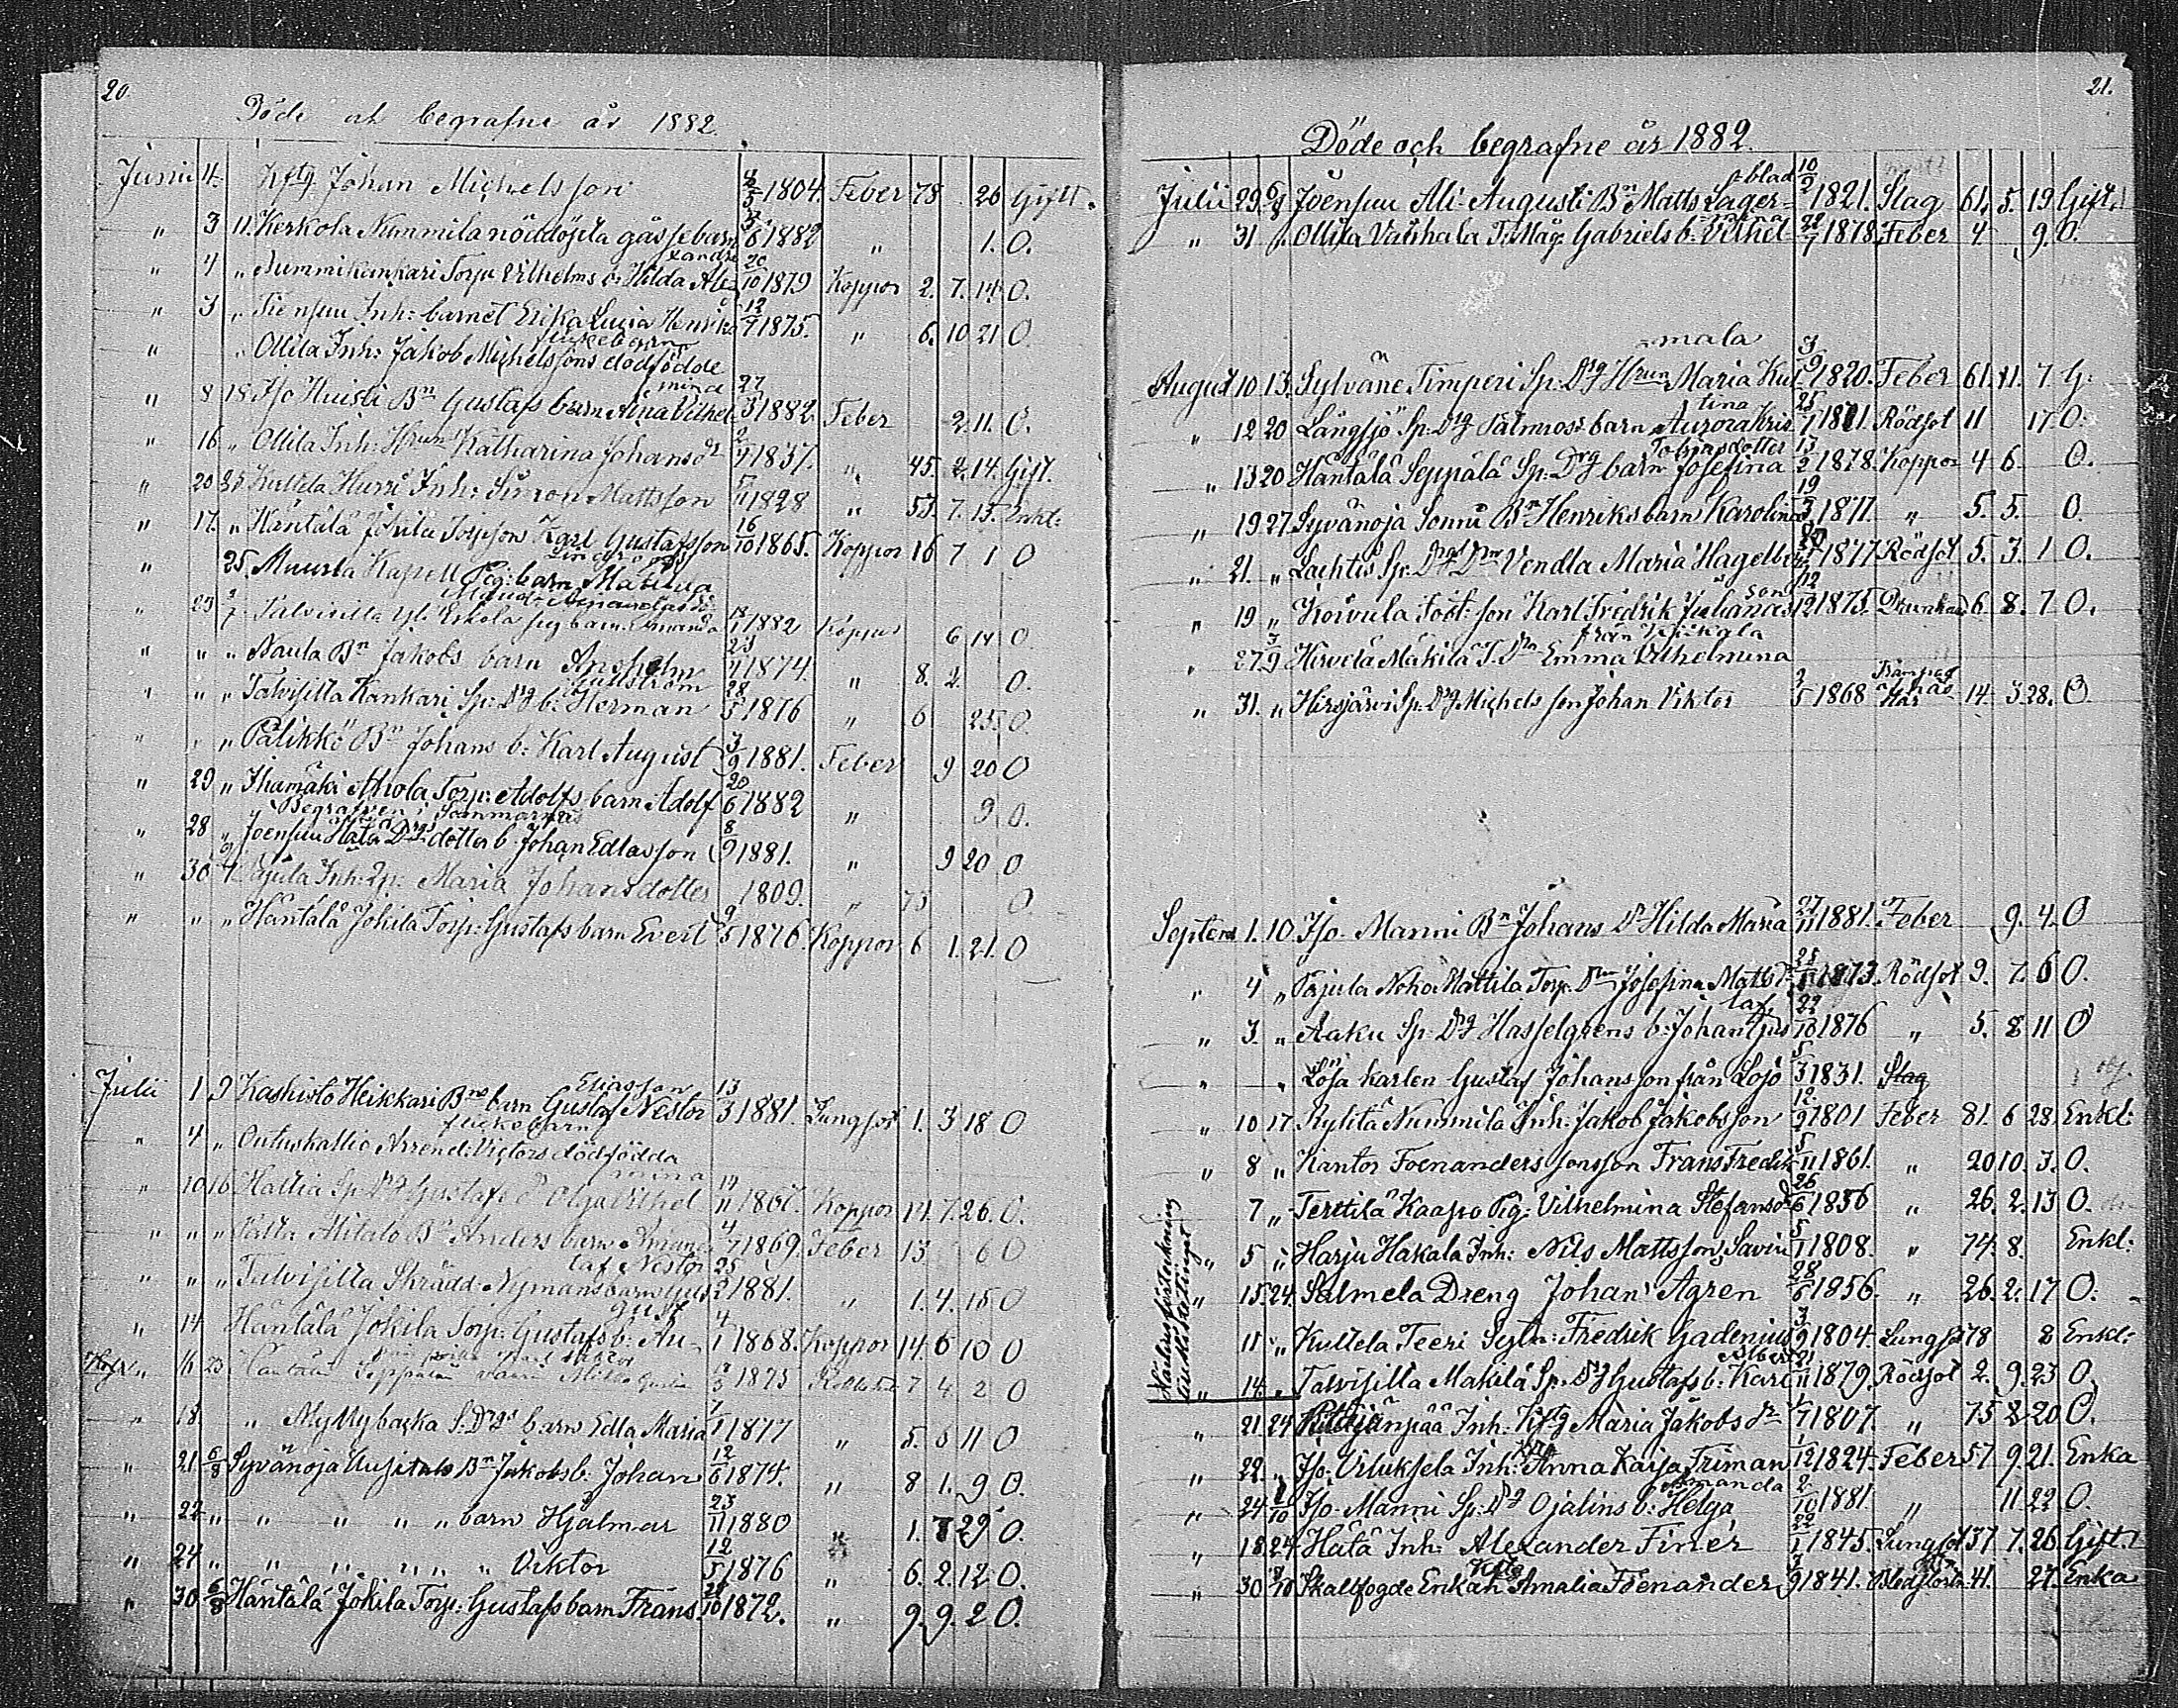 20.
Döde och begrafne år 1882.
Junii 4. Hftg. Johan Michelsson 1804. Feber 78 26 Gift.
" 3 11. Kerkola Nummila nöddöpta gossebarn 1882 " 1. O.
xandra
" 4 " Nummikankari Torp. Vilhelms b. Hilda Ale 20/10 1879 Koppor 2. 7. 14. O.
" 3 " Inh: barnet Erika Lucia Henrika 12/7 1875. " 6. 10 21 O
flickebarn
" " Ollila Inh: Jakob Michelssons dödfödde
mina
" 8 18 Hjo Huisti Bn Gustafs barn Aina Vilhel 27/3 1882. Feber 2 11. O.
" 16 " Ollila Inh: Hrun Katharina Johansdr 2/4 1837. " 45. 2. 14. Gift.
" 20 25 Kultela Hurri Inh: Simon Mattsson 1828 " 53. 7. 15. Enkl:
" 17. " Häntälä Jokila Torpson Karl Gustafsson 16/10 1865. Koppor 16 7 1 O
" 25. Muurla Kapell Pig: barn Matilda
" 23 2/7 Talvisilla Yli Eskola pig barn Amanda 1882 Koppor 6 14 O
" " " Naula Bn Jakobs barn Anshelm 1874. " 8. 2. O.
Gullström
" " " Talvisilla Kankari Sp: Drg b: Herman 28/5 1876 " 6 25 O.
" " " Palikkö Bn Johans b: Karl August 3/9 1881. Feber 9 20 O
" 29 " Ihamäki Ahola Torp: Adolfs barn Adolf 20/6 1882 " 9 O.
Begrafven i Sommarnäs
" 28 " Joensuu Hata Drgs dotter b. Johan Edlasson 8/9 1881. " 9 20 O
" 30 9/7 Pajula Inh: Qp: Maria Johansdotter 1809. " 73 O.
" " " Häntälä Jokila Torp: Gustafs barn Evert 9/5 1876. Koppor 6 1. 21. O
Eliasson
Julii 1 9 Kaskisto Heikkari Bns barn Gustaf Nestor 13/3 1881. Lungsot 1. 3 18 O
flickobarn
" 4 " Outuskallio Arrend: Victors dödfödda
mina
" 10 16 Hallia Sp Drg Gustafs dr Olga Vilhel 14/11 Koppor 14. 7. 26. O.
" " " Alitalo Bn Anders barn Amanda 4/7 1869. Feber 13 6 O
taf Nestor
" " " Talvisilla Skrädd: Nymans barn Gus 25/2 1881. " 1. 4. 15 O
gust
" 14 Häntälä Jokila Torp: Gustafs b: Au- 4/1 1868. Koppor 14. 6 10 O
" 16 23 Häntälä Seppälä barn 1875 7 4 2 O
" 18. " Myllybacka S: Drgs barn Edla Maria 7/1 1877 " 5. 6 11 O
" 21 6/8 Syvänoja Uusitalo Bn Jakobs b: Johan 12/6 1874. " 8 1. 9 O.
" 22 " " " " " barn Hjalmar 23/11 1880 " 1. 7 29 O.
" 24 " " " " " " Viktor 12/5 1876 " 6. 2. 12 O.
" 30 6/8 Häntälä Jokila Torp: Gustafs barn Frans 28/10 1872. " 9. 9. 2 O.
21.
Döde och begrafne år 1882.
blad
Julii 29. 6/8 Joensuu Ali-Augusti Bn Matts Lager- 10/2 1821. Slag 61. 5. 19. Gift.
" 31 " Ollila Vanhala T: Mäg: Gabriels b: Vilhel- 22/7 1878. Feber 4 9. O.
mala
August 10. 13. Sylväne Timperi Sp: Drg Hrun Maria Ku 3/9 1820. Feber 61. 11. 7. G:
tina
" 12 20 Långsjö Sp: Drg Palmross barn Aurora Kris 25/7 1871. Rödsot 11 17. O.
Tobiasdotter
" 13 20 Häntälä Seppälä Sp: Drg barn Josefina 13/2 1878. Koppor 4 6. O.
" 19 27. Syvänoja Sonni Bn Henriks barn Karolina 19/3 1877. " 5. 5. O.
" 21. " Lachtis Sp: Drgs Drn Vendla Maria Hagelberg 1877 Rödsot 5. 3. 1 O.
son
" 19 " Koivula Tost: son Karl Fredrik Julianas 12/12 1875. Drunknad 6. 8. 7 O.
från Uskela
" 27. 3/9 Hirvelä Mäkilä T. Drn Emma Vilhelmina
" 31. " Hirsjärvi Sp: Drg Michels son Johan Viktor 2/5 1868 14. 3. 28. O.
Septem 1. 10. Hjo- Manni Bn Johans Dr Hilda Maria 27/11 1881. Feber 9. 4. O
" 4 " Pajula Noho Mattila Torp: Drn Josefina Matts dr 1873. Rödsot 9. 7. 6 O.
taf
" 3. " Aaku Sp: Drg Hasselgrens b: Johan Gus 22/10 1876 " 5. 8 11 O
" " Löja Karlen Gustaf Johansson från Lojo 5/3 1831. Slag
" 10 17. Kylilä Nummila Inh: Jakob Jakobsson 12/9 1801 Feber 81. 6 28. Enkl:
" 8 " Kantor Foenanders sonson Frans Fredik 5/11 1861. " 20 10. 3. O.
" 7 " Terttilä Kaapo Pig: Vilhelmina Stefansdr 26/6 1856 " 26. 2. 13 O.
" 5 " Harju Hakala Inh: Nils Mattsson Savin 5/1 1808. " 74. 8. Enkl:
" 15. 24. Salmela Dreng Johan Agren 28/6 1856. " 26. 2. 17 O.
" 11 " Kultela Teeri Sytn: Fredrik Gadenius 3/9 1804. Lungsot 78 8 Enkl:
Albert
" 14 " Talvisilla Mäkilä Sp: Drg Gustafs b: Karl 21/11 1879. Rödsot 2. 9. 23 O.
" 21 24 Inh: Hftg Maria Jakobs dr 1/7 1807. " 75 2 20 O.
" 22. " Hjo- Viluksela Inh: Anna Kaija Friman 1/12 1824. Feber 57. 9. 21. Enka
Amanda
" 24 1/10 Hjo- Manni Sp: Drg Ojalins b: Helga 2/10 1881. " 11 22 O.
" 18. 24. Hätä Inh: Alexander Finér 22/1 1845. Lungsot 37 7. 26 Gift.
" 30 8/10 Skallfogde Enkan Amalia Foenander 3/9 1841. 41. 27. Enka